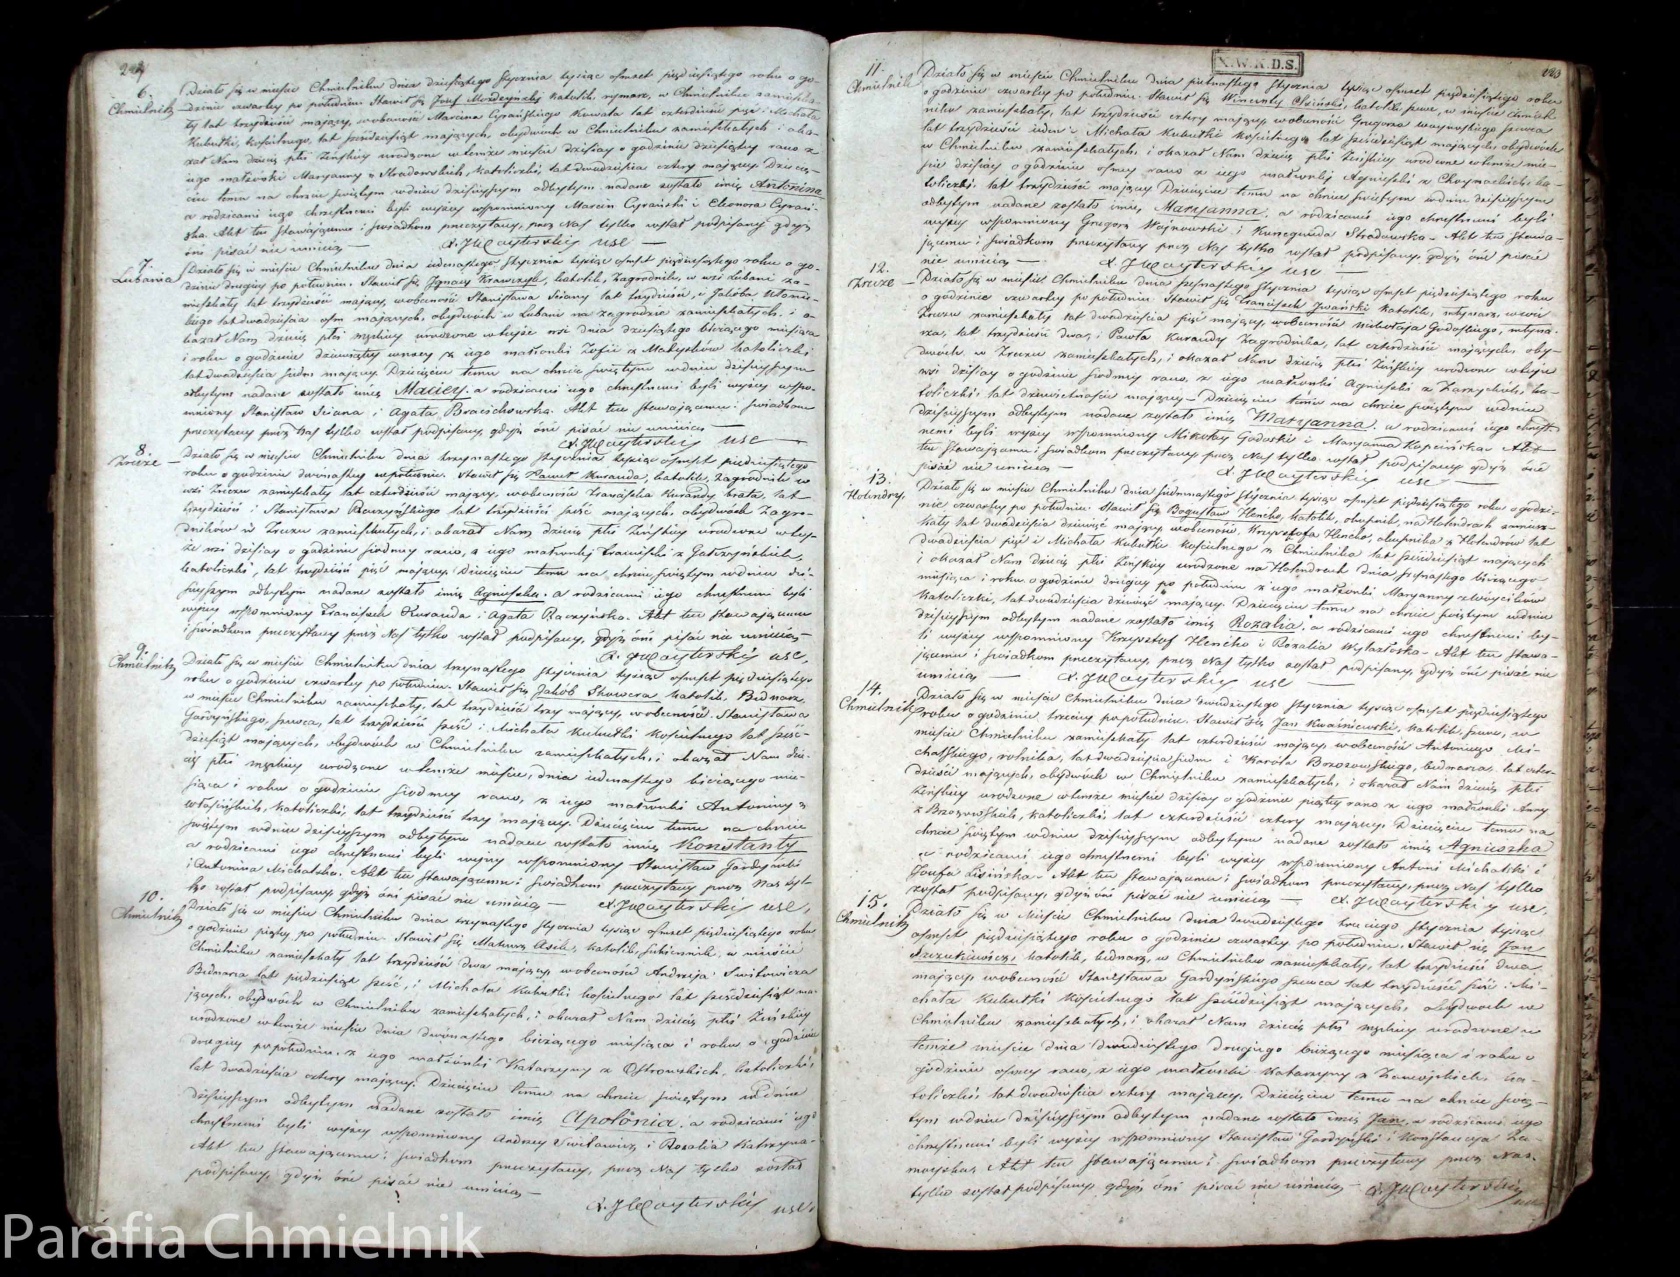 6.
Chmielnik
Działo się w mieście Chmielniku dnia dziesiątego stycznia tysiąc ośmset pięćdziesiątego roku o go-
dzinie czwartey po południu. Stawił się Józef katolik, w Chmielniku zamieszka-
ły lat trzydzieści mający, w obecności Marcina Cyrańskiego Kowala lat czterdzieści pięć i Michała
Kubulki, kościelnego, lat sześćdziesiąt mających, obydwóch w Chmielniku zamieszkałych i oka-
zał Nam dziecię płci żeńskiey urodzone w temże mieście dzisiay o godzinie dziesiątey rano z
iego małżonki Maryanny z Stradowskich, katoliczki, lat dwadzieścia cztery maiącey. Dziecię-
ciu temu na chrzcie świętym w dniu dzisieyszym odbytym nadane zostało imię Antonina
a rodzicami iego chrzestnemi byli wyżey wspomniony Marcin Cyrański i Eleonora Cyrań-
ska. Akt ten stawaiącemu i świadkom przeczytany, przez Nas tylko został podpisany gdyż
óni pisać nie umieią —
7.
Lubania
Działo się w mieście Chmielniku dnia stycznia tysiąc ośmset pięćdziesiątego roku o go-
dzinie drugiey po południu. Stawił się Ignacy Krawczyk, katolik, Zagrodnik, w wsi Lubani za-
mieszkały lat trzydzieści maiący, w obecności Stanisława Sciany lat trzydzieści, i Jakóba
lat dwadzieścia ośm maiących, obydwóch w Lubani na zagrodzie zamieszkałych i o-
kazał Nam dziecię płci męskiey urodzone w teyże wsi dnia dziesiątego bieżącego miesiąca
i roku o godzinie dziewiątey wieczor z iego małżonki Zofii z Małysków katoliczki
lat dwadzieścia siedm maiącey. Dziecięciu temu na chrzcie świętym w dniu dzisieyszym
odbytym nadane zostało imię Maciey, a rodzicami iego chrzestnemi byli wyżey wspo-
mniony Stanisław Sciana i Agata Akt ten stawaiącemu i świadkom
przeczytany przez Nas tylko został podpisany, gdyż óni pisać nie umieią —
8.
Zrecze
Działo się w mieście Chmielniku dnia trzynastego stycznia tysiąc ośmset pięćdziesiątego
roku o godzinie dwunastey w południe. Stawił się Paweł Kuranda, katolik, Zagrodnik w
wsi Zreczu zamieszkały lat czterdzieści maiący, w obecności Franciszka Kurandy brata, lat
trzydzieści i Stanisława Raczyńskiego lat trzydzieści sześć maiących, obydwóch Zagro-
dników w Zreczu zamieszkałych, i okazał Nam dziecię płci żeńskiey urodzone w tey-
że wsi dzisiay o godzinie siódmey rano, z iego małżonki Franciszki z
katoliczki, lat trzydzieści pięć maiącey. Dziecięciu temu na chrzcie świętym w dniu dzi-
sieyszym odbytym nadane zostało imię Agnieszka, a rodzicami iego chrzestnemi byli
wyżey wspomniony Franciszek Kuranda i Agata Raczyńska. Akt ten stawaiącemu
i świadkom przeczytany przez Nas tylko został podpisany, gdyż óni pisać nie umieią —
9.
Chmielnik
Działo się w mieście Chmielniku dnia trzynastego stycznia tysiąc ośmset pięćdziesiątego
roku o godzinie czwartey po południu. Stawił się Jakób Skowera katolik, Bednarz
w mieście Chmielniku zamieszkały, lat trzydzieści trzy maiący, w obecności Stanisława
Gardyńskiego, szewca, lat trzydzieści sześć i Michała Kubulki Kościelnego lat sześć-
dziesiąt maiących, obydwóch w Chmielniku zamieszkałych, i okazał Nam dzie-
cię płci męskiey urodzone w temże mieście, dnia bieżącego mie-
siąca i roku o godzinie siódmey rano, z iego małżonki Antoniny z
katoliczki, lat trzydzieści trzy maiącey. Dziecięciu temu na chrzcie
świętym w dniu dzisieyszym odbytym nadane zostało imię Konstanty
a rodzicami iego chrzestnemi byli wyżey wspomniony Stanisław Gardyński
i Antonina Michalska. Akt ten stawaiącemu i świadkom przeczytany przez Nas tyl-
ko został podpisany, gdyż óni pisać nie umieią —
10.
Chmielnik
Działo się w mieście Chmielniku dnia trzynastego stycznia tysiąc ośmset pięćdziesiątego roku
o godzinie piątey po południu. Stawił się Mateusz katolik, Sukiennik, w mieście
Chmielniku zamieszkały lat trzydzieści dwa maiący, w obecności Andrzeja Switowicza
Bednarza lat pięćdziesiąt sześć, i Michała Kubulki kościelnego lat sześćdziesiąt ma-
iących, obydwóch w Chmielniku zamieszkałych, i okazał Nam dziecię płci żeńskiey
urodzone w temże mieście dnia dwunastego bieżącego miesiąca i roku o godzinie
drugiey po południu, z iego małżonki Katarzyny z Ostrowskich, katoliczki,
lat dwadzieścia cztery maiącey. Dziecięciu temu na chrzcie świętym w dniu
dzisieyszym odbytym nadane zostało imię Apolonia, a rodzicami iego
chrzestnemi byli wyżey wspomniony Andrzey Switowicz, i Rozalia
Akt ten stawaiącemu i świadkom przeczytany, przez Nas tylko został
podpisany, gdyż óni pisać nie umieią —
X.W.R.D.S.
223
11.
Chmielnik
Działo się w mieście Chmielniku dnia piętnastego stycznia tysiąc ośmset pięćdziesiątego roku
o godzinie czwartey po południu. Stawił się Wincenty katolik, szewc, w mieście Chmiel-
niku zamieszkały, lat trzydzieści cztery maiący, w obecności Grzegorza szewca
lat trzydzieści ieden i Michała Kubulki kościelnego lat sześćdziesiąt maiących, obydwóch
w Chmielniku zamieszkałych, i okazał Nam dziecię płci żeńskiey urodzone w temże mie-
ście dzisiay o godzinie ósmey rano z iego małżonki Agnieszki z ka-
toliczki, lat trzydzieści maiącey Dziecięciu temu na chrzcie świętym w dniu dzisieyszym
odbytym nadane zostało imię, Maryanna, a rodzicami iego chrzestnemi byli
wyżey wspomniony Grzegorz Woynowski i Kunegunda Stradowska. Akt ten stawa-
iącemu i świadkom przeczytany przez Nas tylko został podpisany, gdyż óni pisać
nie umieią —
12.
Zrecze
Działo się w mieście Chmielniku dnia szesnastego stycznia tysiąc ośmset pięćdziesiątego roku
o godzinie czwartey po południu. Stawił się Franciszek Iwański katolik, młynarz, w wsi
Zreczu zamieszkały lat dwadzieścia pięć maiący, w obecności Mikołaja Gadoskiego, młyna-
rza, lat trzydzieści dwa, i Pawła Kurandy Zagrodnika, lat czterdzieści maiących, oby-
dwóch w Zreczu zamieszkałych, i okazał Nam dziecię płci żeńskiey urodzone w teyże
wsi dzisiay o godzinie siódmey rano, z iego małżonki Agnieszki z Zarzyckich, ka-
toliczki, lat dziewiętnaście maiącey — Dziecięciu temu na chrzcie świętym w dniu
dzisieyszym odbytym nadane zostało imię Maryanna, a rodzicami iego chrzest-
nemi byli wyżey wspomniony Mikołay Gadoski i Maryanna Kopcińska. Akt
ten stawaiącemu i świadkom przeczytany przez Nas tylko został podpisany gdyż óni
pisać nie umieią —
13.
Holendry
Działo się w mieście Chmielniku dnia siedmnastego stycznia tysiąc ośmset pięćdziesiątego roku o godzi-
nie czwartey po południu. Stawił się Bogusław Hencko, katolik, okupnik, na Holendrach zamiesz-
kały lat dwadzieścia dziewięć maiący w obecności Krzysztofa Hencko, okupnika z Holendrów lat
dwadzieścia pięć i Michała Kubulki Kościelnego z Chmielnika lat sześćdziesiąt maiących
i okazał Nam dziecię płci żeńskiey urodzone na Holendrach dnia szesnastego bieżącego
miesiąca i roku o godzinie drugiey po południu z iego małżonki Maryanny z Woycików
katoliczki, lat dwadzieścia dziewięć maiącey. Dziecięciu temu na chrzcie świętym w dniu
dzisieyszym odbytym nadane zostało imię Rozalia, a rodzicami iego chrzestnemi by-
li wyżey wspomniony Krzysztof Hencko i Rozalia Akt ten stawa-
iącemu i świadkom przeczytany, przez Nas tylko został podpisany, gdyż óni pisać nie
umieią —
14.
Chmielnik
Działo się w mieście Chmielniku dnia dwudziestego stycznia tysiąc ośmset pięćdziesiątego
roku o godzinie trzeciey po południu. Stawił się Jan Kwaśniewski, katolik, szewc, w
mieście Chmielniku zamieszkały lat czterdzieści maiący, w obecności Antoniego Mi-
chalskiego, rolnika, lat dwadzieścia siedm i Karola Brzozowskiego, bednarza, lat czter-
dzieści maiących, obydwóch w Chmielniku zamieszkałych, i okazał Nam dziecię płci
żeńskiey urodzone w temże mieście dzisiay o godzinie piątey rano z iego małżonki Anny
z Brzozowskich, katoliczki, lat czterdzieści cztery maiącey. Dziecięciu temu na
chrzcie świętym w dniu dzisieyszym odbytym nadane zostało imię Agnieszka
a rodzicami iego chrzestnemi byli wyżey wspomniony Antoni Michalski i
Józefa Lisińska. Akt ten stawaiącemu i świadkom przeczytany, przez Nas tylko
został podpisany, gdyż óni pisać nie umieią —
15.
Chmielnik
Działo się w Mieście Chmielniku dnia dwudziestego trzeciego stycznia tysiąc
ośmset pięćdziesiątego roku o godzinie czwartey po południu. Stawił się Jan
Szczukiewicz, katolik, bednarz, w Chmielniku zamieszkały, lat trzydzieści dwa
maiący, w obecności Stanisława Gardyńskiego szewca lat trzydzieści sześć i Mi-
chała Kubulki Kościelnego lat sześćdziesiąt maiących, obydwóch w
Chmielniku zamieszkałych, i okazał Nam dziecię płci męskiey urodzone w
temże mieście dnia dwudziestego drugiego bieżącego miesiąca i roku o
godzinie ósmey rano, z iego małżonki Katarzyny z Zamoyskich, ka-
toliczki, lat dwadzieścia cztery maiącey. Dziecięciu temu na chrzcie świę-
tym w dniu dzisieyszym odbytym nadane zostało imię Jan, a rodzicami iego
chrzestnemi byli wyżey wspomniony Stanisław Gardyński i Konstancya Za-
moyska. Akt ten stawaiącemu i świadkom przeczytany przez Nas
tylko został podpisany, gdyż óni pisać nie umieią —
Parafia Chmielnik